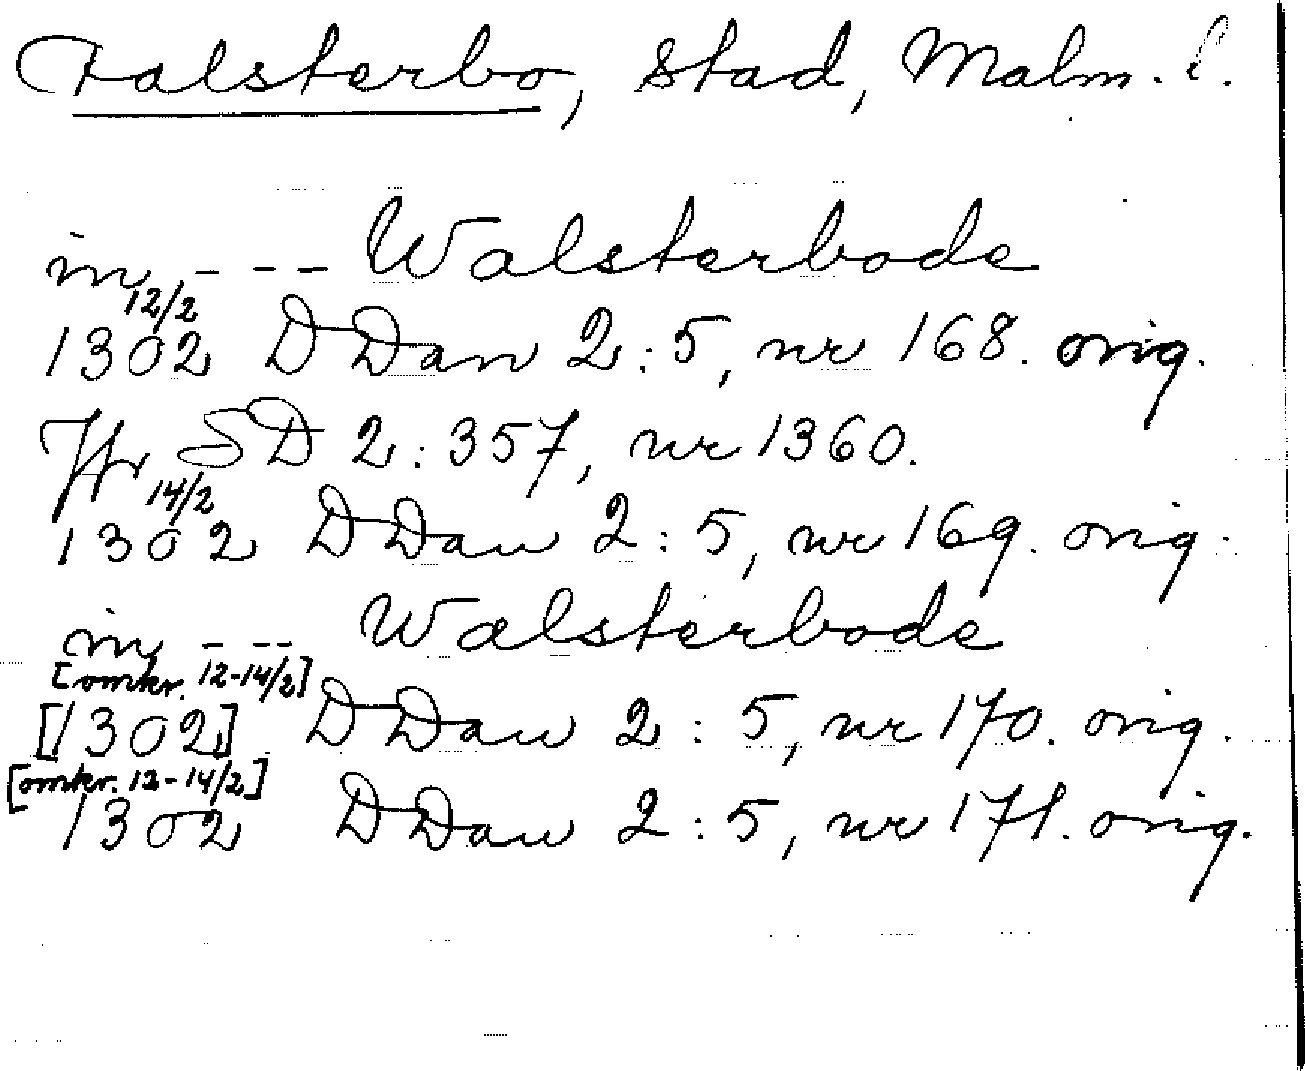 Falsterbo, Stad, Malm. l.
in - - - Walsterbode
12/2
1302 DDan 2:5, nr 168. orig.
Jfr SD 2:357, nr 1360.
14/2
1302 DDan 2:5, nr 169. orig.
in - - - Walsterbode
[omkr. 12-14/2]
[1302] DDan 2:5, nr 170. orig.
[omkr. 12-14/2]
1302 DDan 2:5, nr 171. orig.